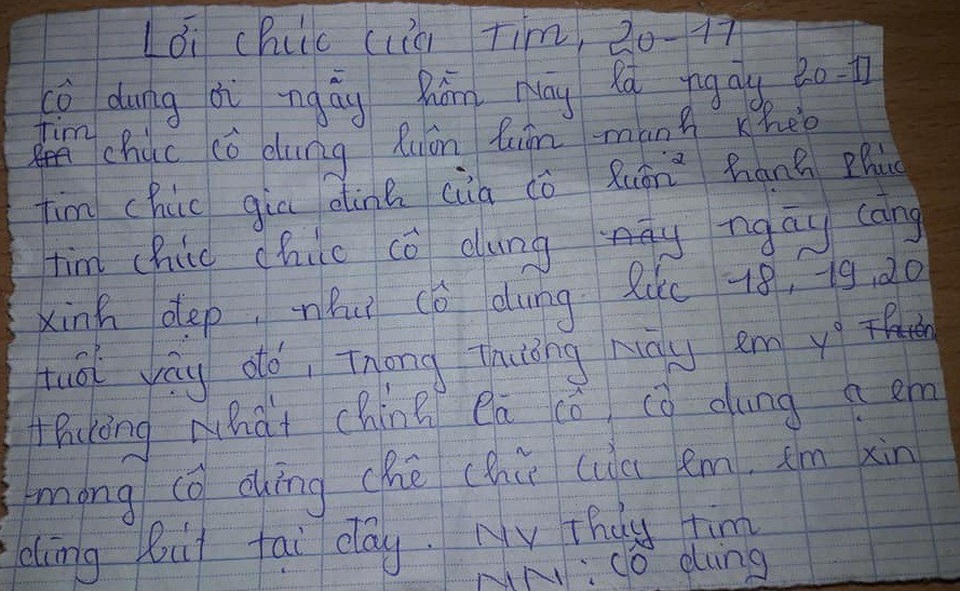 Lời chúc của Tim, 20-11
Cô dung ơi ngãy hôm Nãy lã ngãy 20-11
Tim chúc cô dung luôn luôn mạnh khẻo
Tim chúc gia đình của cô luôn² hạnh phúc
Tim chúc chúc cô dung nãy ngãy cãng
xinh đẹp, như cô dung lúc 18, 19, 20
tuổi vậy đó, Trong Trường Nãy em yº Thuơn
thương Nhất chính lã cô, cô dung ạ em
mong cô đừng chê chữ của em. Em xin
dừng bút tại đây. NV Thủy Tim
NN: cô dung